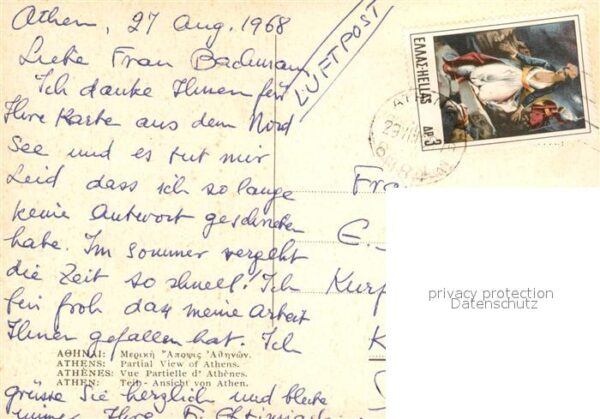 Athen, 27 Aug. 1968
LUFTPOST
Liebe Frau Bachman
Ich danke Ihnen für
Ihre Karte aus dem Nord
See und es tut mir
Leid dass ich so lange
keine Antwort geschrieben
habe. Im Sommer vergeht
die Zeit so schnell! Ich
bin froh dass meine Arbeit
Ihnen gefallen hat. Ich
ΑΘΗΝΑΙ: Μερικὴ Ἄποψις Ἀθηνῶν.
ATHENS: Partial View of Athens.
ATHÈNES: Vue Partielle d' Athènes.
ATHEN: Teil-Ansicht von Athen.
grüsse Sie herzlich und bleibe
immer Ihre
ΕΛΛΑΣ-HELLAS
ΔΡ. 3
Fra
E.
Kurf
K
privacy protection
Datenschutz